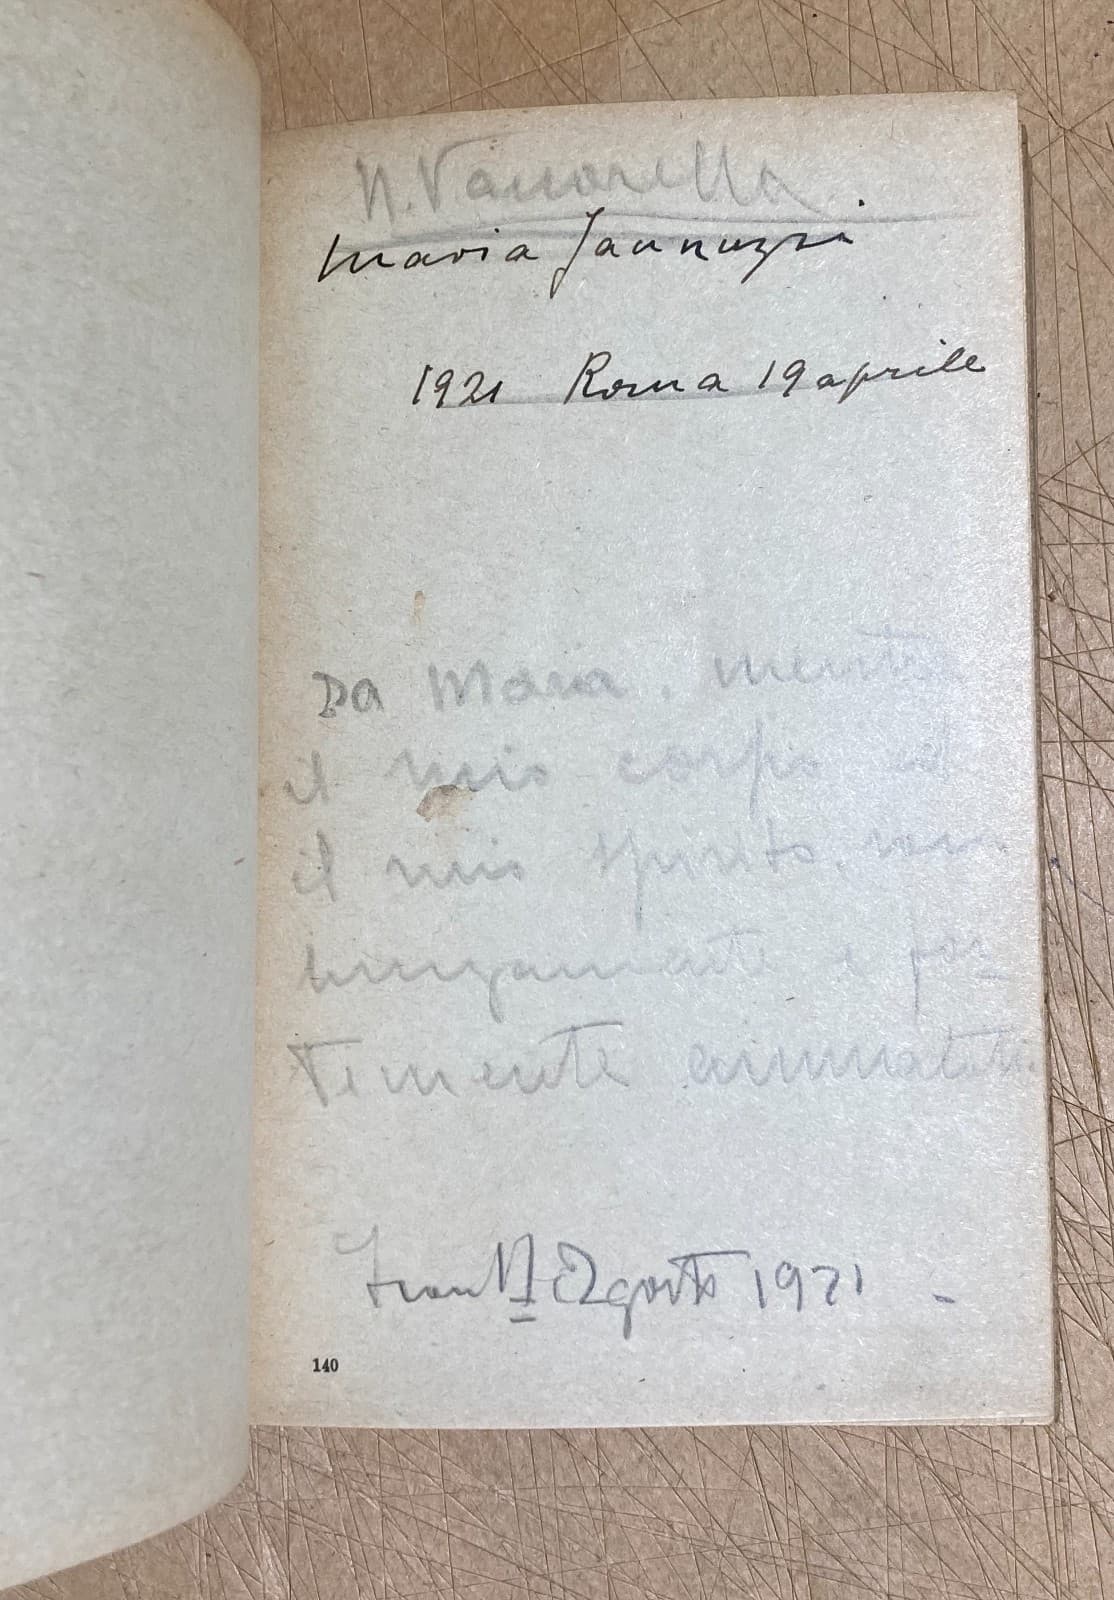 Maria Jannuzzi
1921 Roma 19 aprile
Da Maria, mentre
il mio corpo ed
il mio spirito, son
e for=
temente ammalati.
Agosto 1921
140